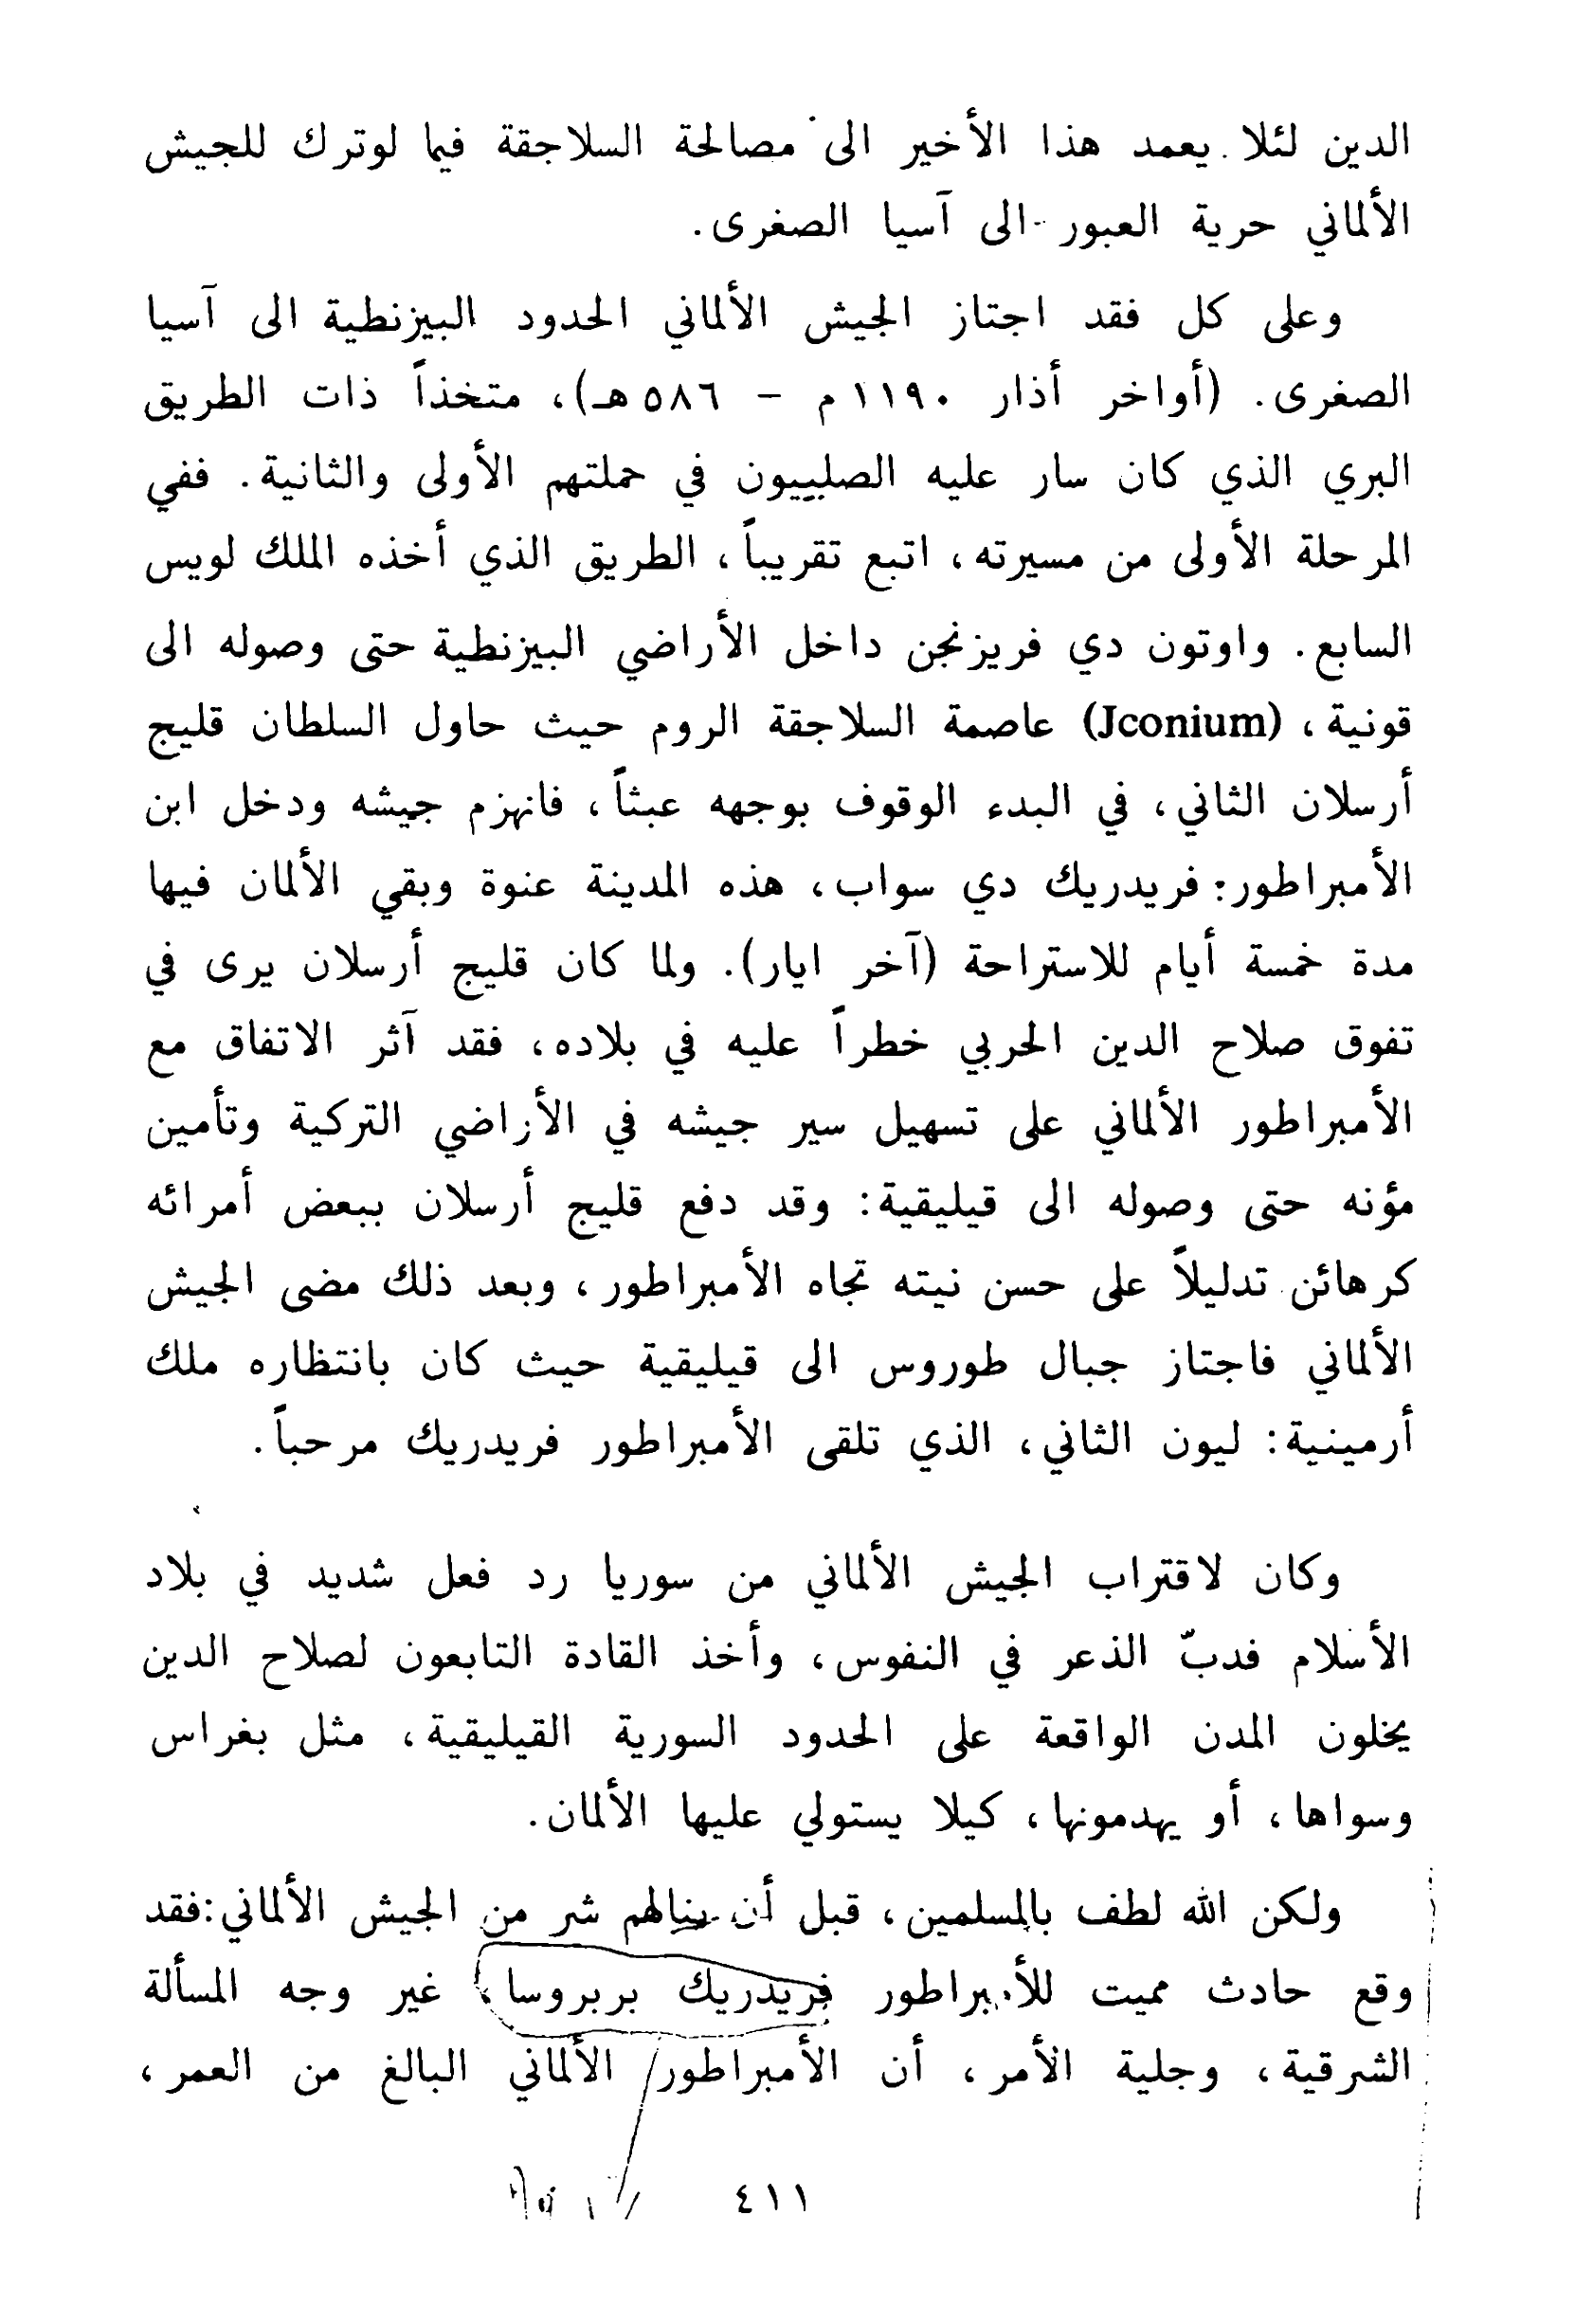 الدين لئلا يعمد هذا الأخير الى مصالحة السلاجقة فيما لوترك للجيش
الألماني حرية العبور الى آسيا الصغرى.
وعلى كل فقد اجتاز الجيش الألماني الحدود البيزنطية الى آسيا
الصغرى. (أواخر أذار ١١٩٠م - ٥٨٦هـ)، متخذاً ذات الطريق
البري الذي كان سار عليه الصليبيون في حملتهم الأولى والثانية. ففي
المرحلة الأولى من مسيرته، اتبع تقريباً، الطريق الذي أخذه الملك لويس
السابع. واوتون دي فريزنجن داخل الأراضي البيزنطية حتى وصوله الى
قونية، (Jconium) عاصمة السلاجقة الروم حيث حاول السلطان قليج
أرسلان الثاني، في البدء الوقوف بوجهه عبثاً، فانهزم جيشه ودخل ابن
الأمبراطور: فريدريك دي سواب، هذه المدينة عنوة وبقي الألمان فيها
مدة خمسة أيام للاستراحة (آخر ايار). ولما كان قليج أرسلان يرى في
تفوق صلاح الدين الحربي خطراً عليه في بلاده، فقد آثر الاتفاق مع
الأمبراطور الألماني على تسهيل سير جيشه في الأراضي التركية وتأمين
مؤنه حتى وصوله الى قيليقية: وقد دفع قليج أرسلان ببعض أمرائه
كرهائن تدليلاً على حسن نيته تجاه الأمبراطور، وبعد ذلك مضى الجيش
الألماني فاجتاز جبال طوروس الى قيليقية حيث كان بانتظاره ملك
أرمينية: ليون الثاني، الذي تلقى الأمبراطور فريدريك مرحباً.
وكان لاقتراب الجيش الألماني من سوريا رد فعل شديد في بلاد
الأسلام فدبّ الذعر في النفوس، وأخذ القادة التابعون لصلاح الدين
يخلون المدن الواقعة على الحدود السورية القيليقية، مثل بغراس
وسواها، أو يهدمونها، كيلا يستولي عليها الألمان.
ولكن الله لطف بالمسلمين، قبل أن ينالهم شر من الجيش الألماني:فقد
وقع حادث مميت للأمبراطور فريدريك بربروسا، غير وجه المسألة
الشرقية، وجلية الأمر، أن الأمبراطور الألماني البالغ من العمر،
٤١١